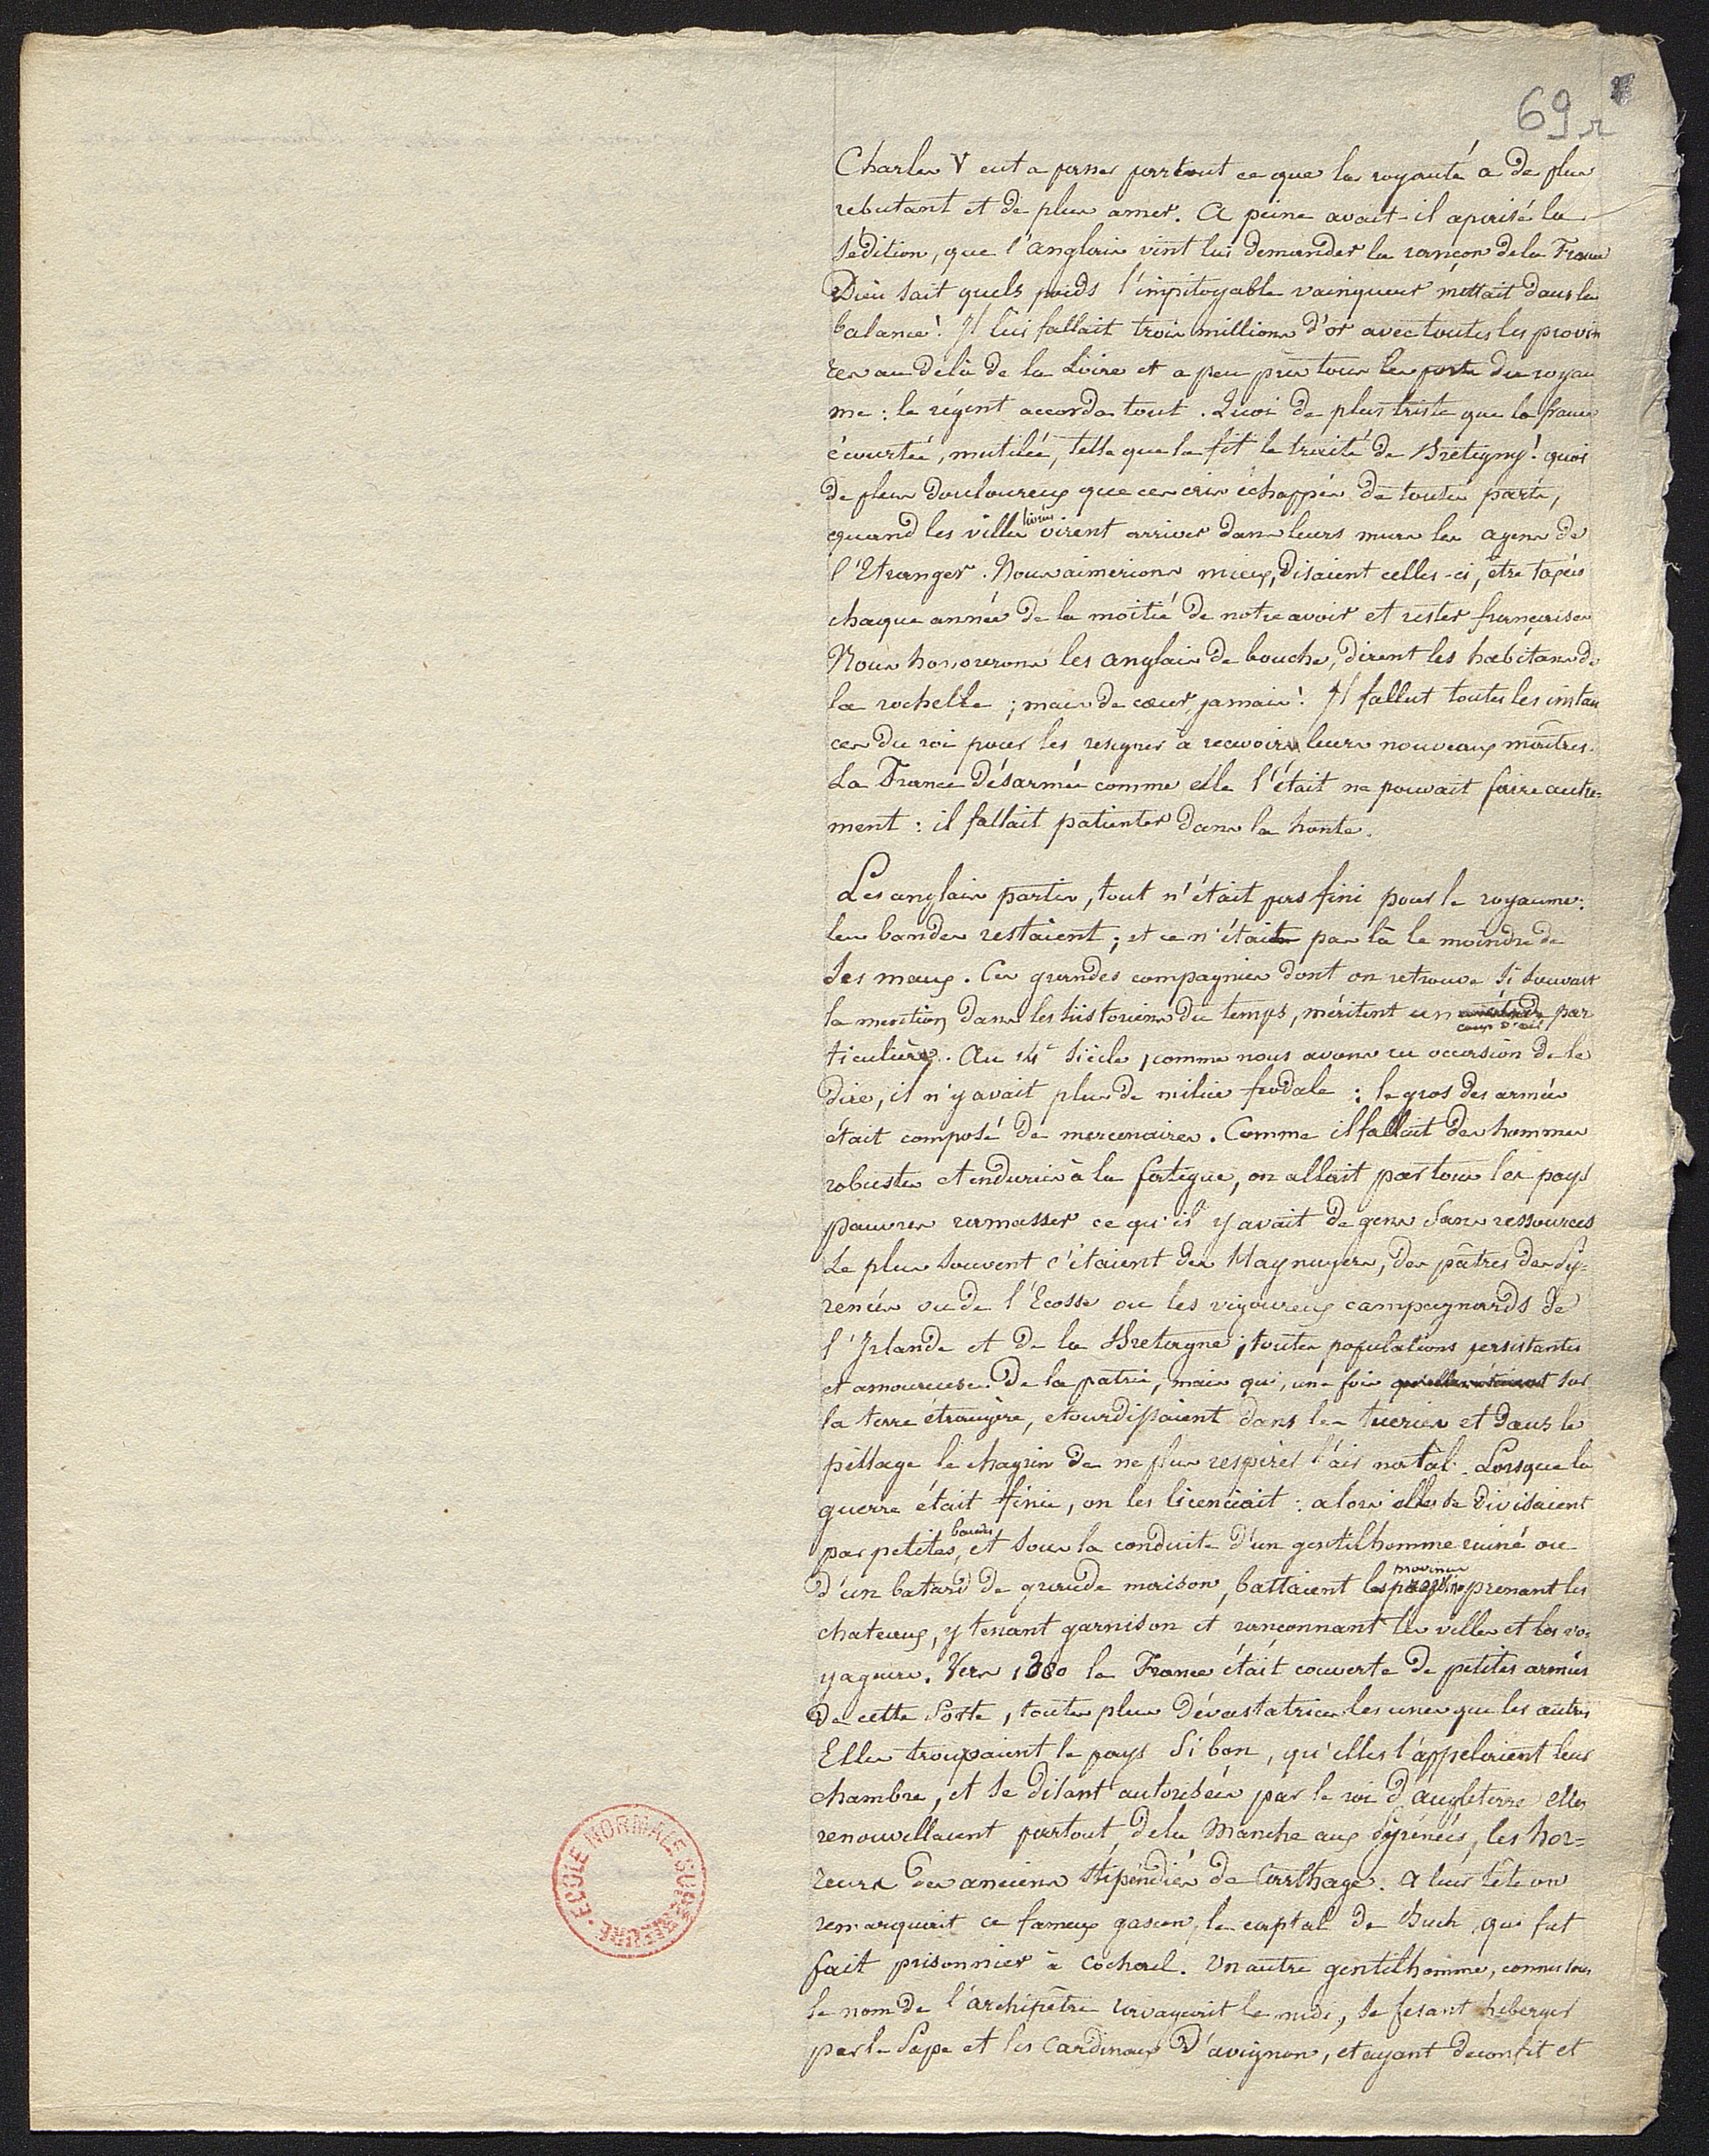 69 r
Charles V eut à passer par tout ce que la royauté a de plus
rebutant et de plus amer. A peine avait-il apaisé la
sédition, que l'anglais vint lui demander la rançon de la France
Dieu sait quels poids l'impitoyable vainqueur mettait dans la
balance! Il lui fallait trois millions d'or avec toutes les provin
ces au delà de la Loire et a peu près tous les ports du royau
me : le régent accorda tout. Quoi de plus triste que la france
écourtée, mutilée, telle que la fit le traité de Brétigny! quoi
de plus douloureux que ces cris échappés de toutes parts,
quand les villes livrées virent arriver dans leurs murs les agens de
l'Etranger. Nous aimerions mieux, disaient celles-ci, être taxées
chaque année de la moitié de notre avoir et rester françaises
Nous honorerons les anglais de bouche, dirent les habitans de
la rochelle ; mais de cœur, jamais! Il fallut toutes les instan
ces du roi pour les résigner à recevoir leurs nouveaux maîtres.
La France désarmée comme elle l'était ne pouvait faire autre-
ment : il fallait patienter dans la honte.
Les anglais partis, tout n'était pas fini pour le royaume:
les bandes restaient ; et ce n'était pas là le moindre de
ses maux. Ces grandes compagnies dont on retrouve si souvent
la mention dans les historiens du temps, méritent un coup d'œil par
ticulier. Au 14e siècle, comme nous avons eu occasion de le
dire, il n'y avait plus de milice féodale : le gros des armées
était composé de mercenaires. Comme il fallait des hommes
robustes et endurcis à la fatigue, on allait par tous les pays
pauvres ramasser ce qu'il y avait de gens sans ressources
Le plus souvent c'étaient des Haynuyers, des pâtres des Py-
renées ou de l'Ecosse ou les vigoureux campagnards de
l'Irlande et de la Bretagne ; toutes populations persistantes
et amoureuses de la patrie, mais qui, une fois qu'elles étaient sur
la terre étrangère, etourdissaient dans les tueries et dans le
pillage le chagrin de ne plus respirer l'air natal. Lorsque la
guerre était finie, on les licenciait : alors elles se divisaient
par petites bandes, et sous la conduite d'un gentilhomme ruiné ou
d'un batard de grande maison, battaient les provinces prenant les
chateaux, y tenant garnison et rançonnant les villes et les vo-
yageurs. Vers 1360 la France était couverte de petites armées
de cette sorte, toutes plus dévastatrices les unes que les autres
Elles trouvaient le pays si bon, qu'elles l'appelaient leur
chambre, et se disant autorisées par le roi d'angleterre elles
renouvellaient partout, de la Manche aux Pyrénées, les hor-
reurs des anciens stipendiés de Carthage. A leur tête on
remarquait ce fameux gascon, le captal de Buch, qui fut
fait prisonnier à Cocherel. Un autre gentilhomme, connu sous
le nom de l'archiprêtre ravageait le midi, se fesant héberger
par le Pape et les Cardinaux d'avignon, et ayant deconfit et
ECOLE NORMALE SUPERIEURE